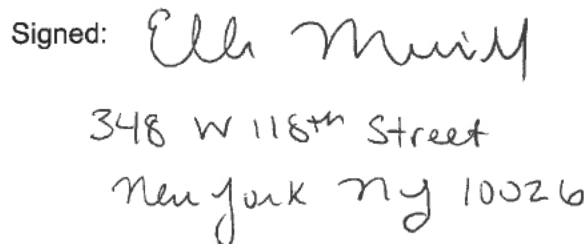 Signed: Elli Merrill
348 W 118th Street
New York NY 10026